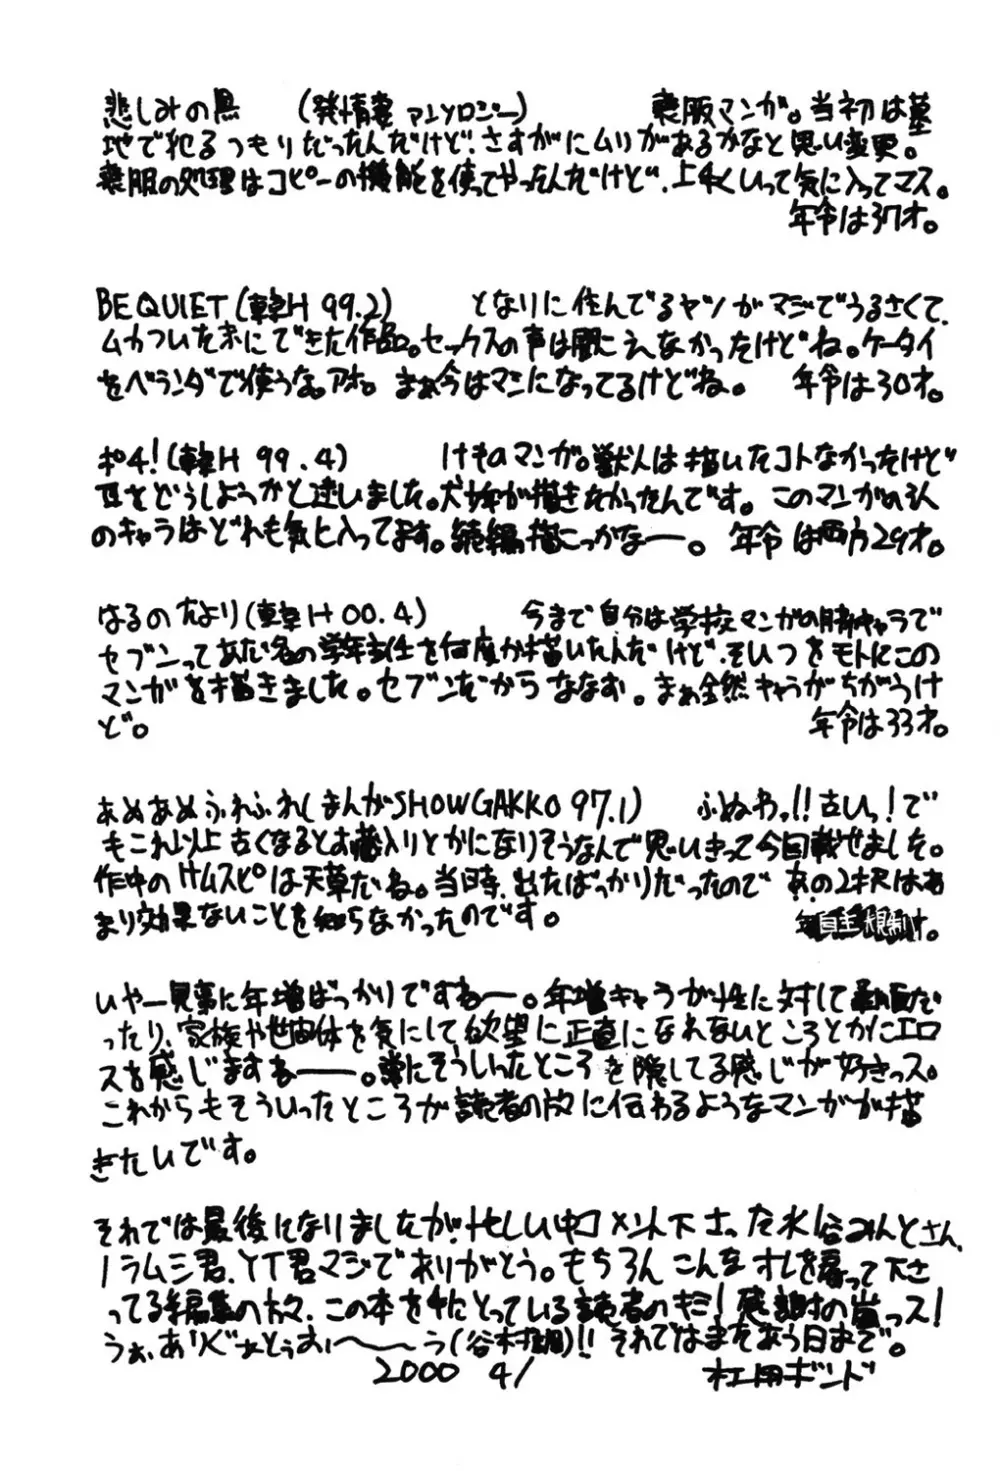 悲しみの黒 (発情妻アンソロジー) 喪服マンガ。当初は墓
地で犯るつもりだったんだけど、さすがにムリがあるかなと思い変更。
喪服の処理はコピーの機能を使ってやったんだけど、上手くいって気に入ってマス。
年令は37才。
BE QUIET (華H 99.2) となりに住んでるヤツがマジでうるさくて、
ムカついた末にできた作品。セックスの声は聞こえなかったけどね。ケータイ
をベランダで使うな。アホ。まぁ今はマシになってるけどね。 年令は30才。
ポチ! (華H 99.4) けものマンガ。獣人は描いたコトなかったけど
耳をどうしようかと迷いました。犬 が描きたかったんです。このマンガの3人
のキャラはどれも気に入ってます。続編描こっかなー。 年令は両方29才。
はるのたより (華H 00.4) 今まで自分は学校マンガの脇キャラで
セブンってあだ名の学年主任を何度か描いたんだけど、そいつをモトにこの
マンガを描きました。セブンだからななお。まぁ全然キャラがちがうけ
ど。 年令は33才。
あめあめふれふれ (まんがSHOWGAKKO 97.1) ふぬわっ!!古いっ!で
もこれ以上古くなるとお蔵入りとかになりそうなんで思いきって今回載せました。
作中のサムスピは天草だね。当時、出たばっかりだったので あの2択はあ
まり効果ないことを知らなかったのです。 自主規制
いやー見事に年増ばっかりですねー。年増キャラが性に対して だ
ったり、家族や世間体を気にして欲望に正直になれないところとかにエロ
スを感じますねー。常にそういったところを隠してる感じが好きっス。
これからもそういったところが読者の方に伝わるようなマンガが描
きたいです。
それでは最後になりましたが、忙しい中コメント下さった水谷みんとさん、
ノラムシ君、YT君マジでありがとう。もちろんこんなオレを 下さ
ってる編集の方々、この本を手にとっている読者のキミ!感謝の嵐っス!
うぉ、ありぐぁとぅおぉ〜う(谷村 )!!それではまた会う日まで。
2000 4/ 杠用ボンド